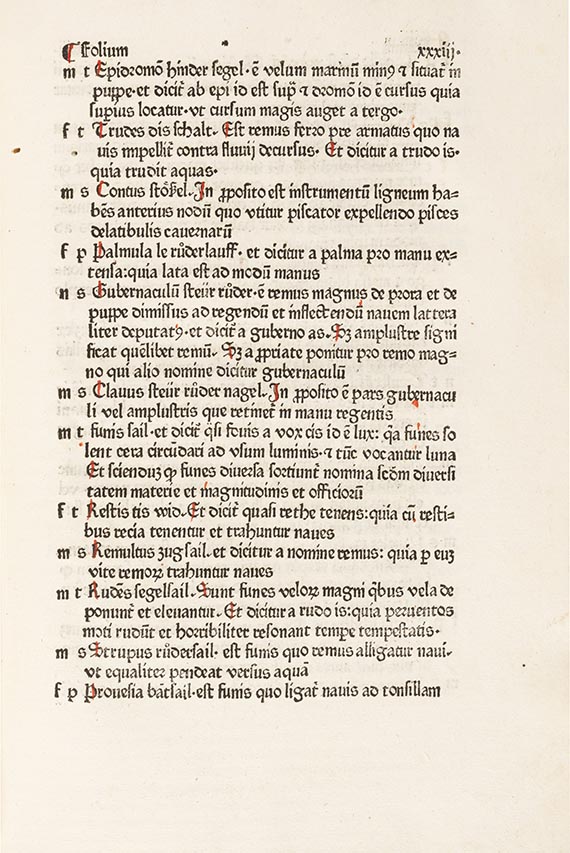 ¶ Folium xxxiij.
m t Epidromō hinder segel. ē velum marinū minꝰ ⁊ situat̄ in
puppe. et dicit̄ ab epi id est sup̄ ⁊ dromō id ē cursus quia
superius locatur. vt cursum magis auget a tergo.
f t Trudes dis schalt. Est remus ferro pre armatus quo na
uis impellit̄ contra fluuij decursus. Et dicitur a trudo is.
quia trudit aquas.
m s Contus stoͤkel. In ꝓposito est instrumentū ligneum ha⸗
bēs anterius nodū quo vtitur piscator expellendo pisces
delatibulis cauernarū
f p Palmula le ruͦderlauff. et dicitur a palma pro manu ex⸗
tensa: quia lata est ad modū manus
n s Gubernaculū steür ruͦder. ē remus magnus de prora et de
puppe dimissus ad regendū et inflectendū nauem lattera
liter deputatꝰ. et dicit̄ a guberno as. Sꝫ amplustre signi
ficat quēlibet remū. Sꝫ a ꝓpriate ponitur pro remo mag⸗
no qui alio nomine dicitur gubernaculū
m s Clauus steür ruͦder nagel. In ꝓposito ē pars gubernacu
li vel amplustris que retinet̄ in manu regentis
m t funis sail. et dicit̄ q̄si fouis a vox cis id ē lux: q̄a funes so
lent cera circūdari ad vsum luminis. ⁊ tūc vocantur luna
Et scienduꝫ ꝙ funes diuersa sortiunt̄ nomina scd̄m diuersi
tatem materie et magnitudinis et officiorū
f t Restis tis wid. Et dicit̄ quasi rethe tenens: quia cū resti⸗
bus recia tenentur et trahuntur naues
m s Remultus zugsail. et dicitur a nomine remus: quia p euꝫ
vice remoꝝ trahuntur naues
m t Rudēs segelsail. Sunt funes veloꝝ magni q̄bus vela de
ponunt̄ et eleuantur. Et dicitur a rudo is: quia per uentos
moti rudūt et horribiliter resonant tempe tempestatis.
m s Strupus ruͦdersail. est funis quo remus alligatur naui.
vt equaliter pendeat versus aquā
f p Prouesia bātsail. est funis quo ligat̄ nauis ad tonsillam